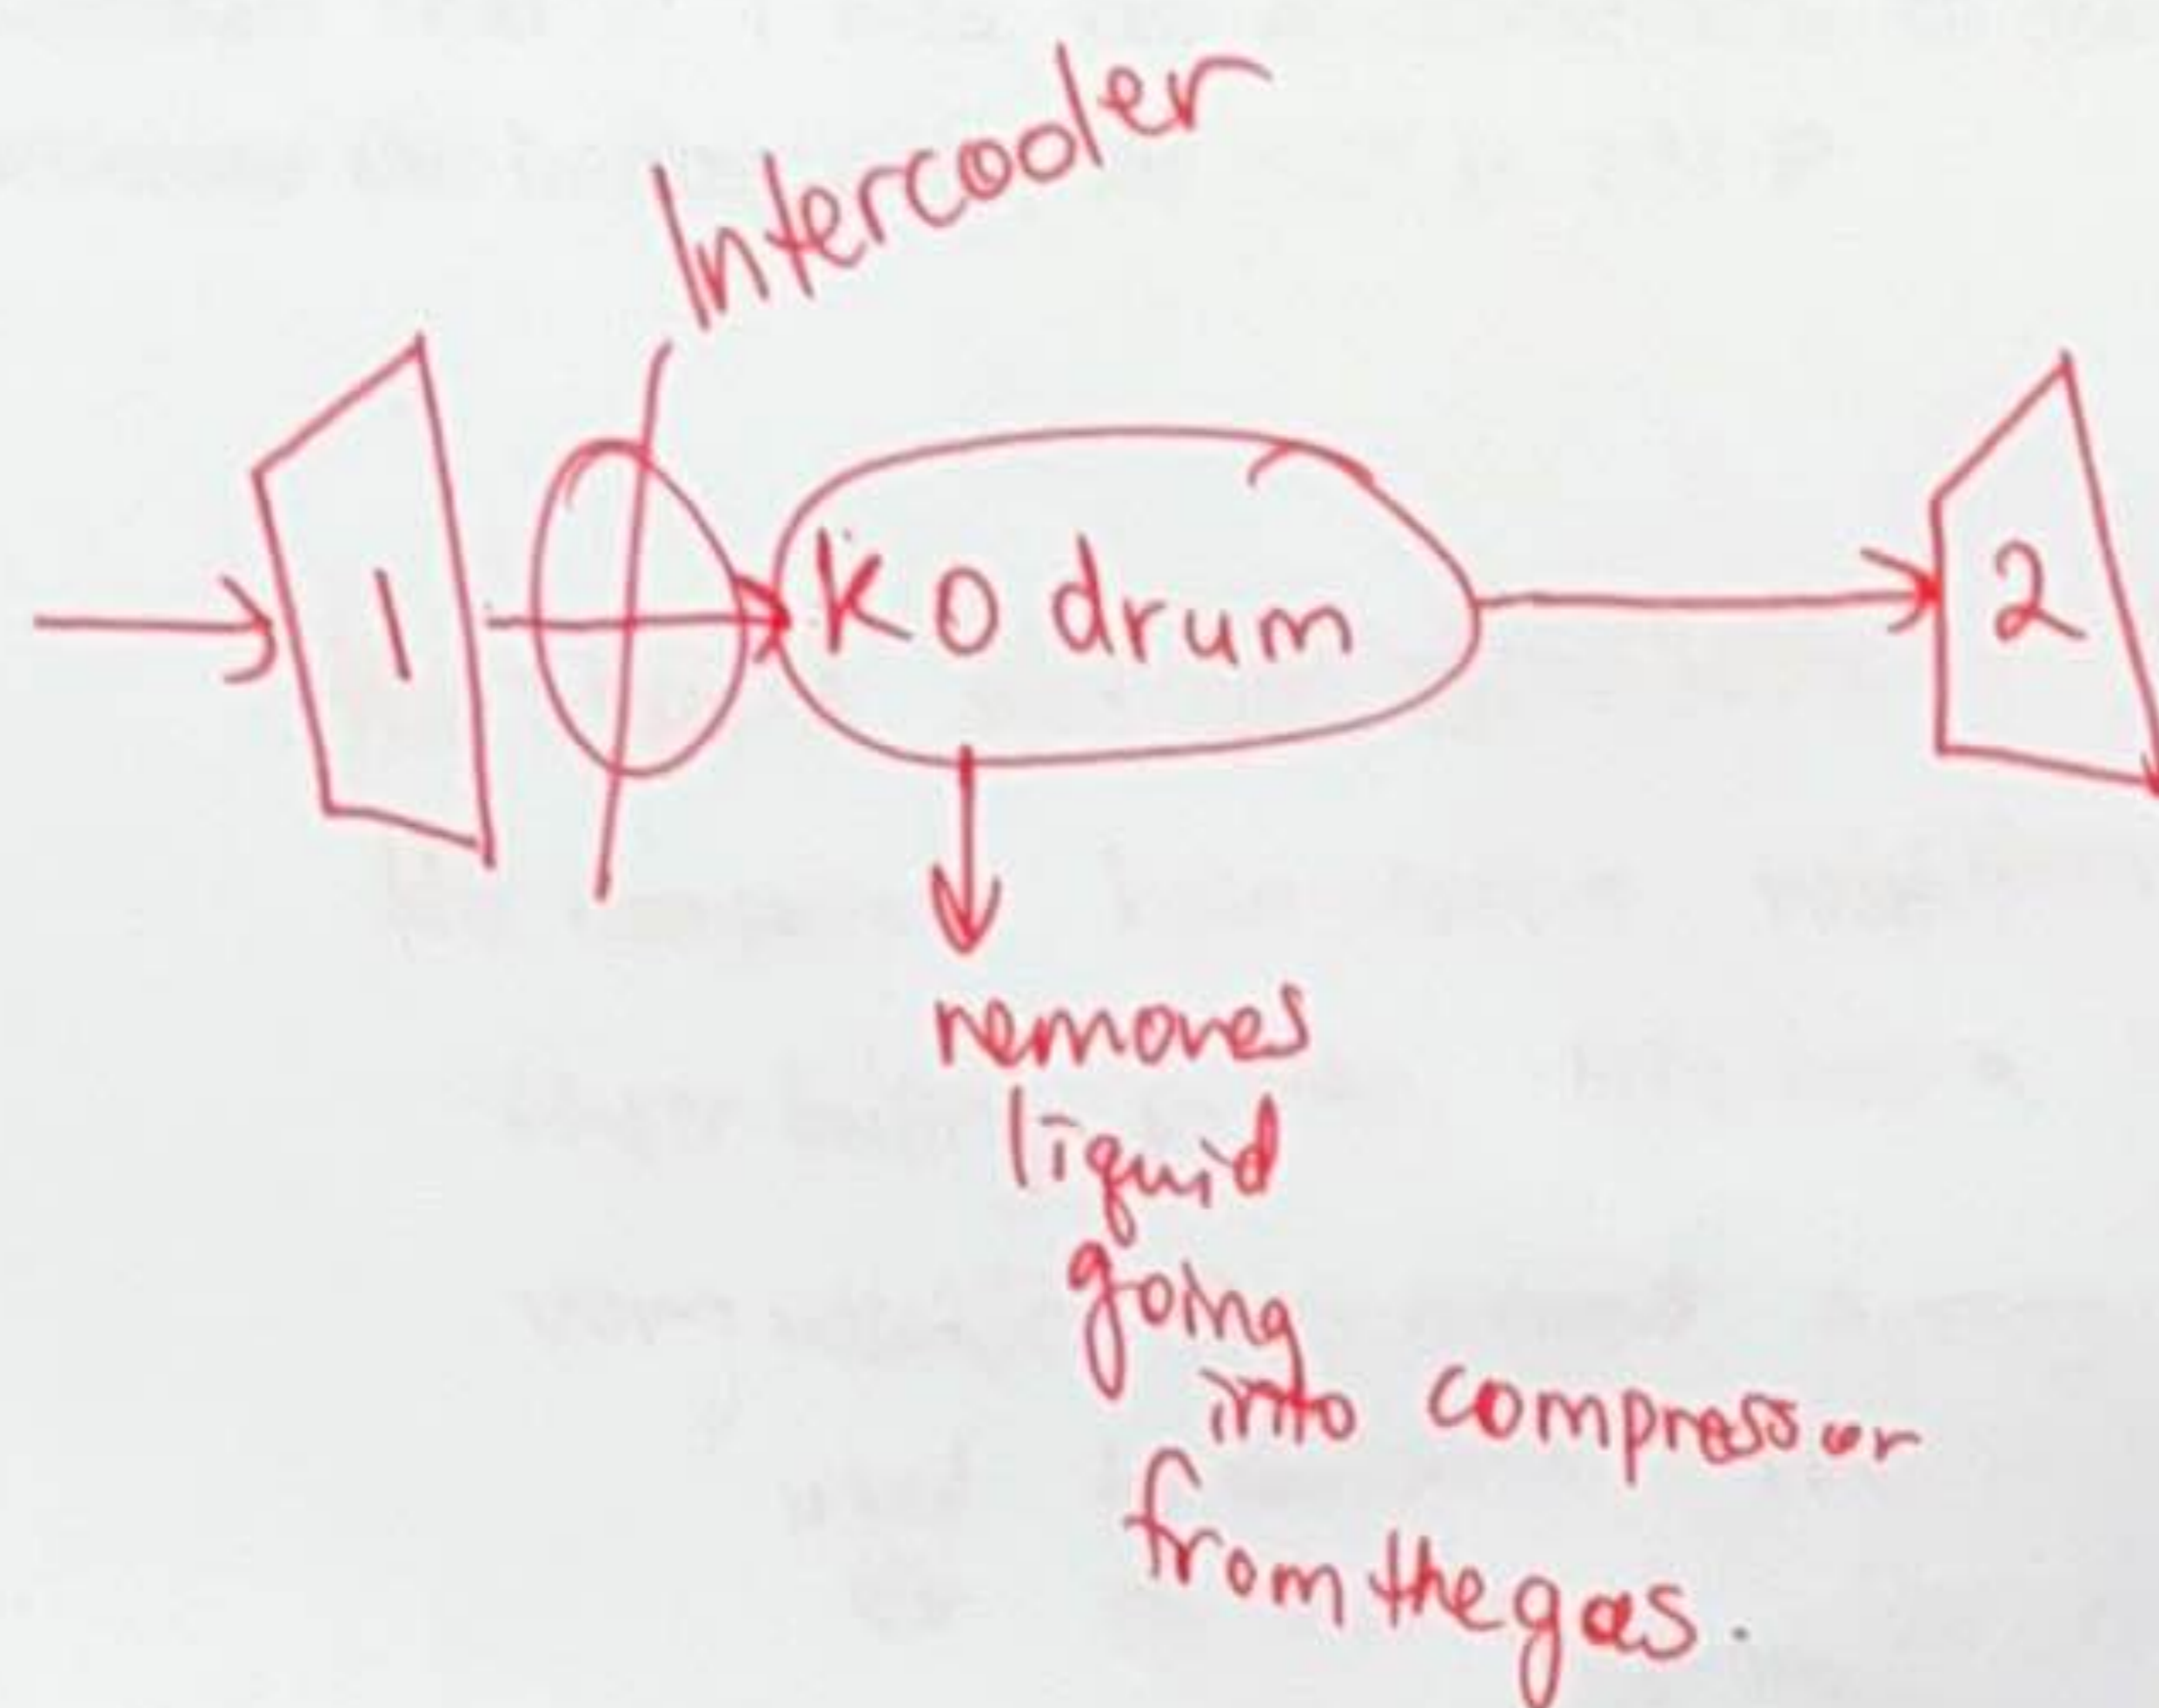 Intercooler
1
KO drum
2
removes
liquid
going
into compressor
from the gas.